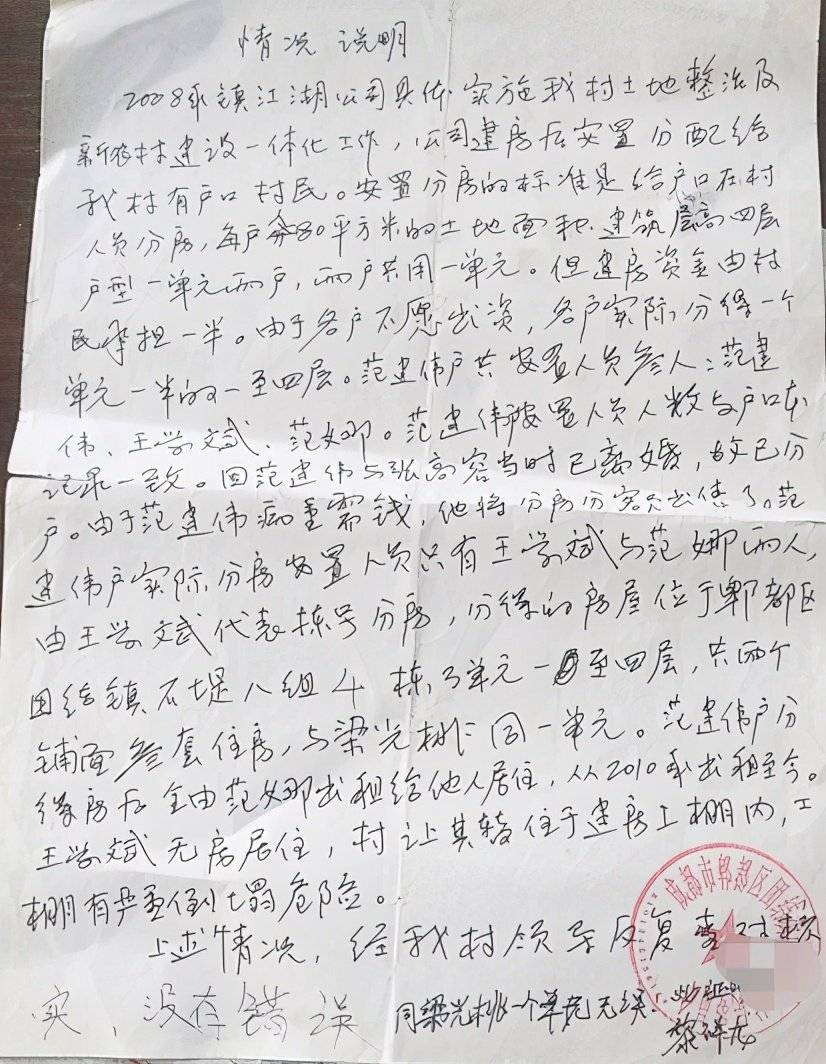 情况说明
2008年镇江湖公司具体实施我村土地整治及
新农村建设一体化工作，公司建房后安置分配给
我村有户口村民。安置分房的标准是给户口在村
人员分房，每户分80平方米的土地面积，建筑层高四层
户型一单元两户，两户共用一单元。但建房资金由村
民承担一半。由于各户不愿出资，各户实际分得一个
单元一半的一至四层。范建伟户共安置人员叁人：范建
伟、王学斌、范女娜。范建伟户安置人员人数与户口本
记录一致。因范建伟与张高容当时已离婚，故已分
户。由于范建伟病重需钱，他将分房份额出售了。范
建伟户实际分房安置人员只有王学斌与范娜两人，
由王学文斌代表拣号分房，分得的房屋位于郫都区
团结镇石堤八组4栋3单元一至四层，共两个
铺面叁套住房，与梁光桃同一单元。范建伟户分
得房后全由范娜出租给他人居住，从2010年出租至今。
王学斌无房居住，村让其暂住于建房工棚内，工
棚有严重倒塌危险。
上述情况，经我村领导反复查对核
实，没有错误 同梁光桃一个单元无误
黎祥龙
成都市郫都区团结